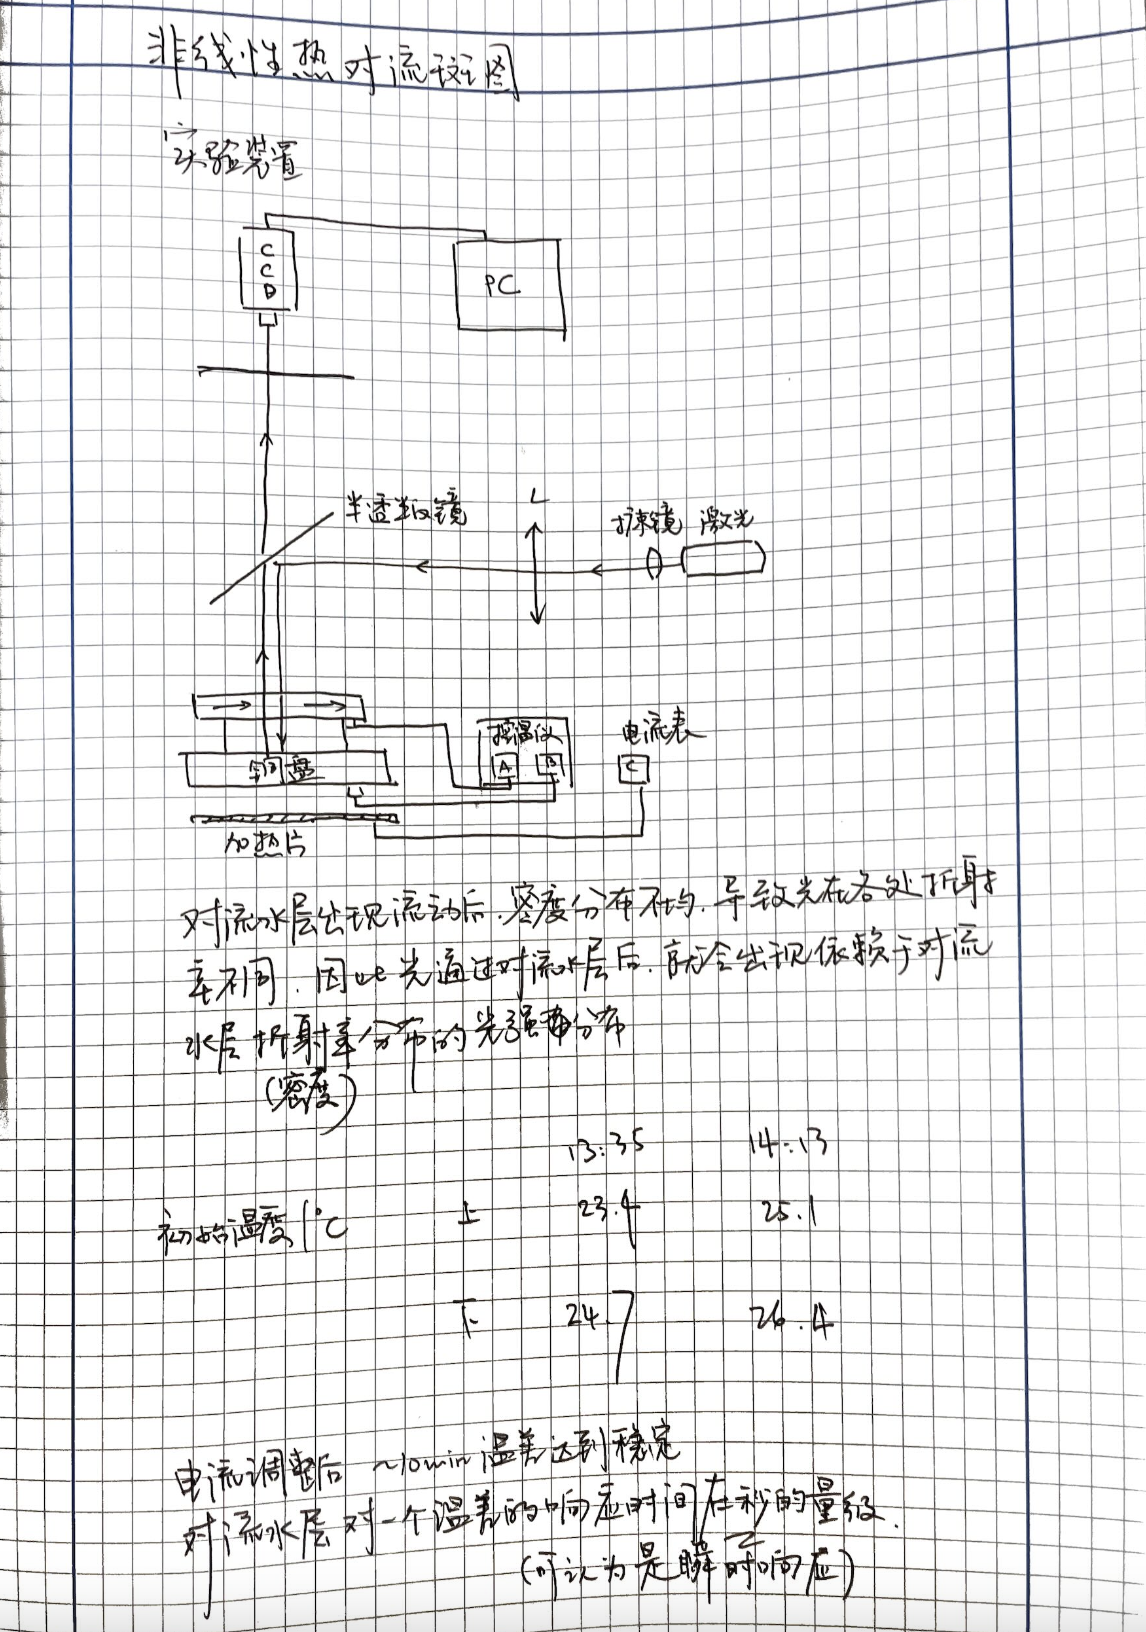 非线性热对流斑图
实验装置
CCD
PC
半透半反镜
L
扩束镜 激光
控温仪
电流表
A
B
C
铜盘
加热片
对流水层出现流动后，密度分布不均，导致光在各处折射
率不同，因此光通过对流水层后，就会出现依赖于对流
水层折射率分布的光强分布
(密度)
13:35 14:13
初始温度/°C 上 23.4 25.1
下 24.7 26.4
电流调整后 ~10min 温差达到稳定
对流水层对一个温差的响应时间在秒的量级.
(可认为是瞬时响应)